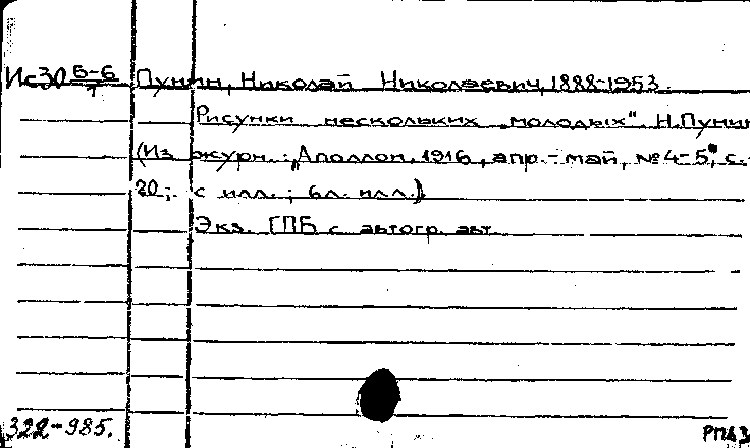 Ис30 Б-6/7 Пунин, Николай Николаевич, 1888-1953.
Рисунки нескольких „молодых". Н.Пунин
(Из журн.: „Аполлон, 1916, апр.-май, №4-5", с.
20; с илл.; 6л. илл.).
Экз. ГПБ с автогр. авт.
322-985.